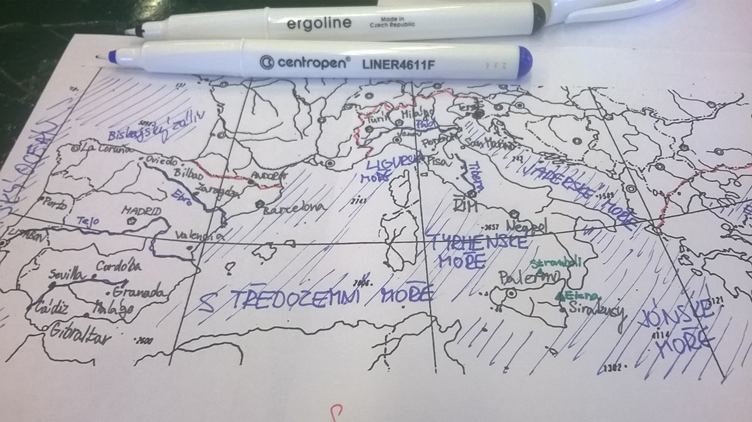 ergoline
Made in
Czech Republic
centropen® LINER4611F
Biskajský záliv
La Coruña
Oviedo
Bilbao
Zaragoza
ANDORRA
Ebro
Barcelona
Porto
MADRID
Tejo
Valencia
Sevilla
Cordóba
Granada
Cádiz
Malaga
Gibraltar
STŘEDOZEMNÍ MOŘE
Turín
Milano
Pád
Janov
Terst
San Marino
Pisa
LIGURSKÉ
MOŘE
Tibera
ŘÍM
Neapol
JADERSKÉ MOŘE
TYRHÉNSKÉ
MOŘE
Stromboli
Palermo
Etna
Sirakusy
JÓNSKÉ
MOŘE